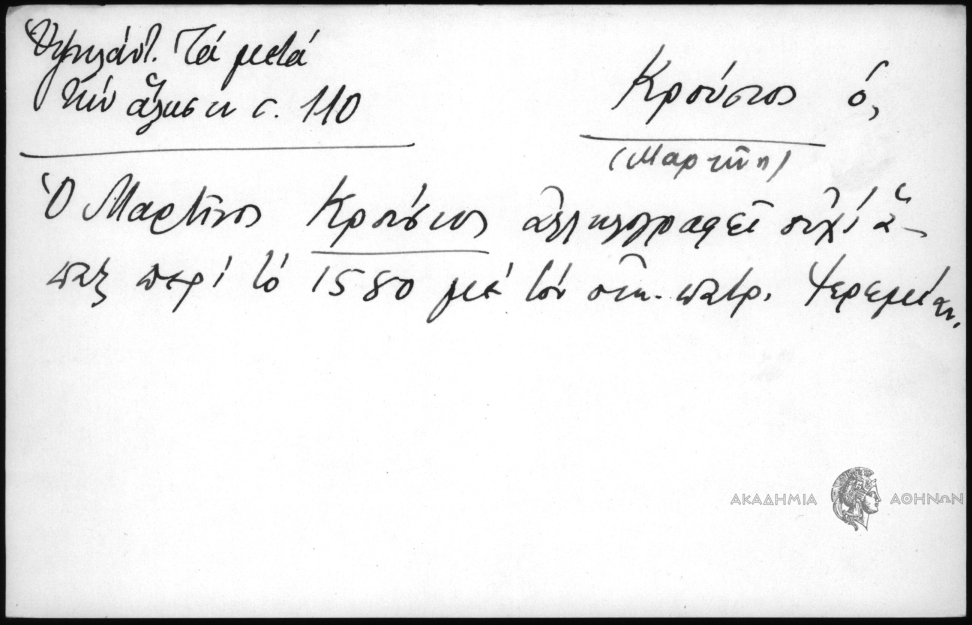 Ὑψηλάντ. Τά μετά
τήν ἅλωσιν σ. 110
Κρούσιος ὁ,
(Μαρτῖνος)
Ὁ Μαρτῖνος Κρούσιος ἀλληλογραφεῖ οὐχί ἅ-
παξ περί τό 1580 μέ τόν οἰκ. πατρ. Ἱερεμίαν.
ΑΚΑΔΗΜΙΑ ΑΘΗΝΩΝ